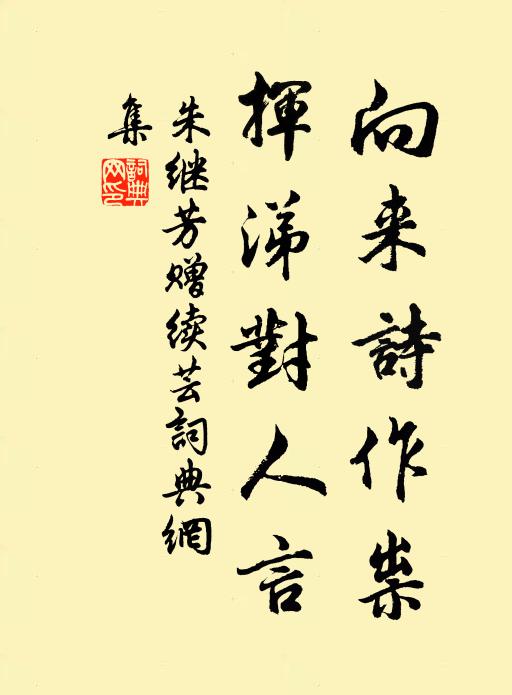 向来詩作祟
揮涕對人言
朱继芳赠续芸詞典網
集
詞典网印